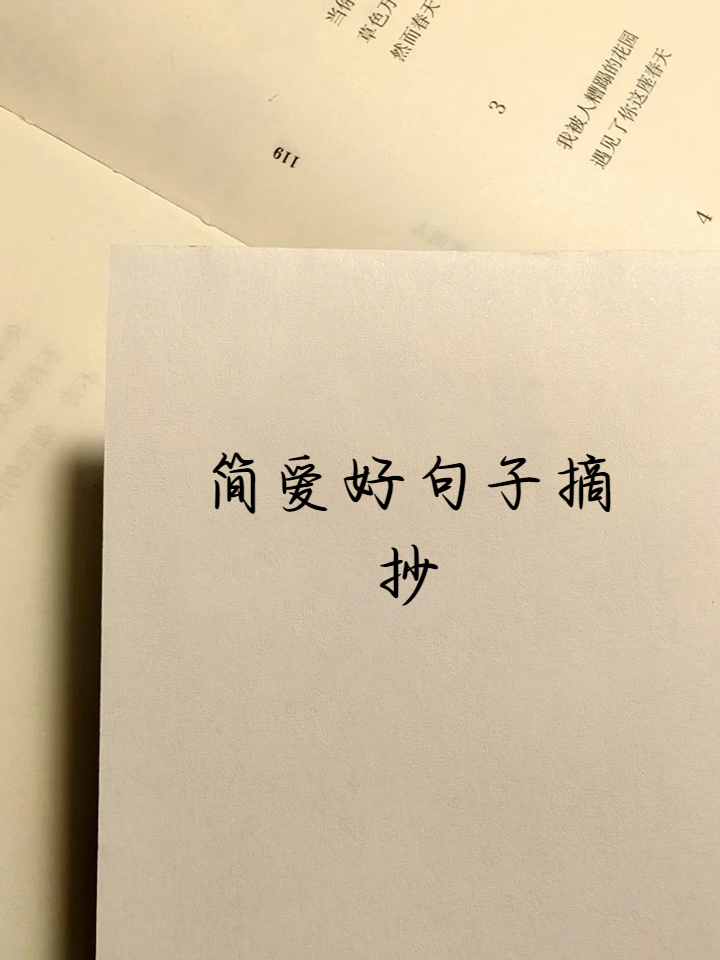 草色万
然而春天
3
我被人糟蹋的花园
遇见了你这座春天
119
4
简爱好句子摘
抄